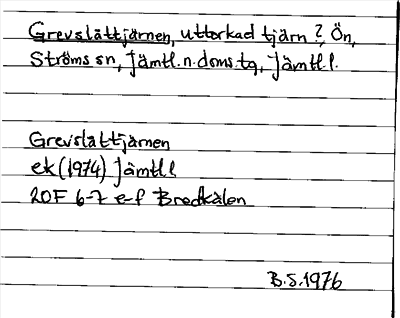 Grevslåttjärnen, uttorkad tjärn?, Ön,
Ströms sn, Jämtl.n.doms.tg, Jämtl.l.
Grevslåttjärnen
ek (1974) Jämtl l
20F 6-7 e-f Bredkälen
B.S. 1976